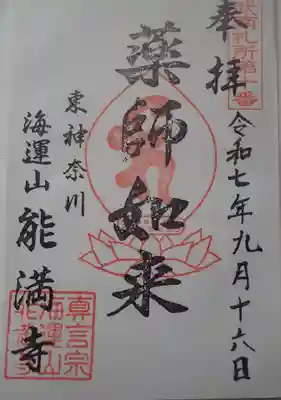 奉拝
令和七年九月十六日
薬師如来
東神奈川
海運山
能満寺
真言宗
海運山